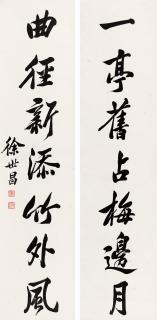 一亭舊占梅邊月
曲徑新添竹外風
徐世昌